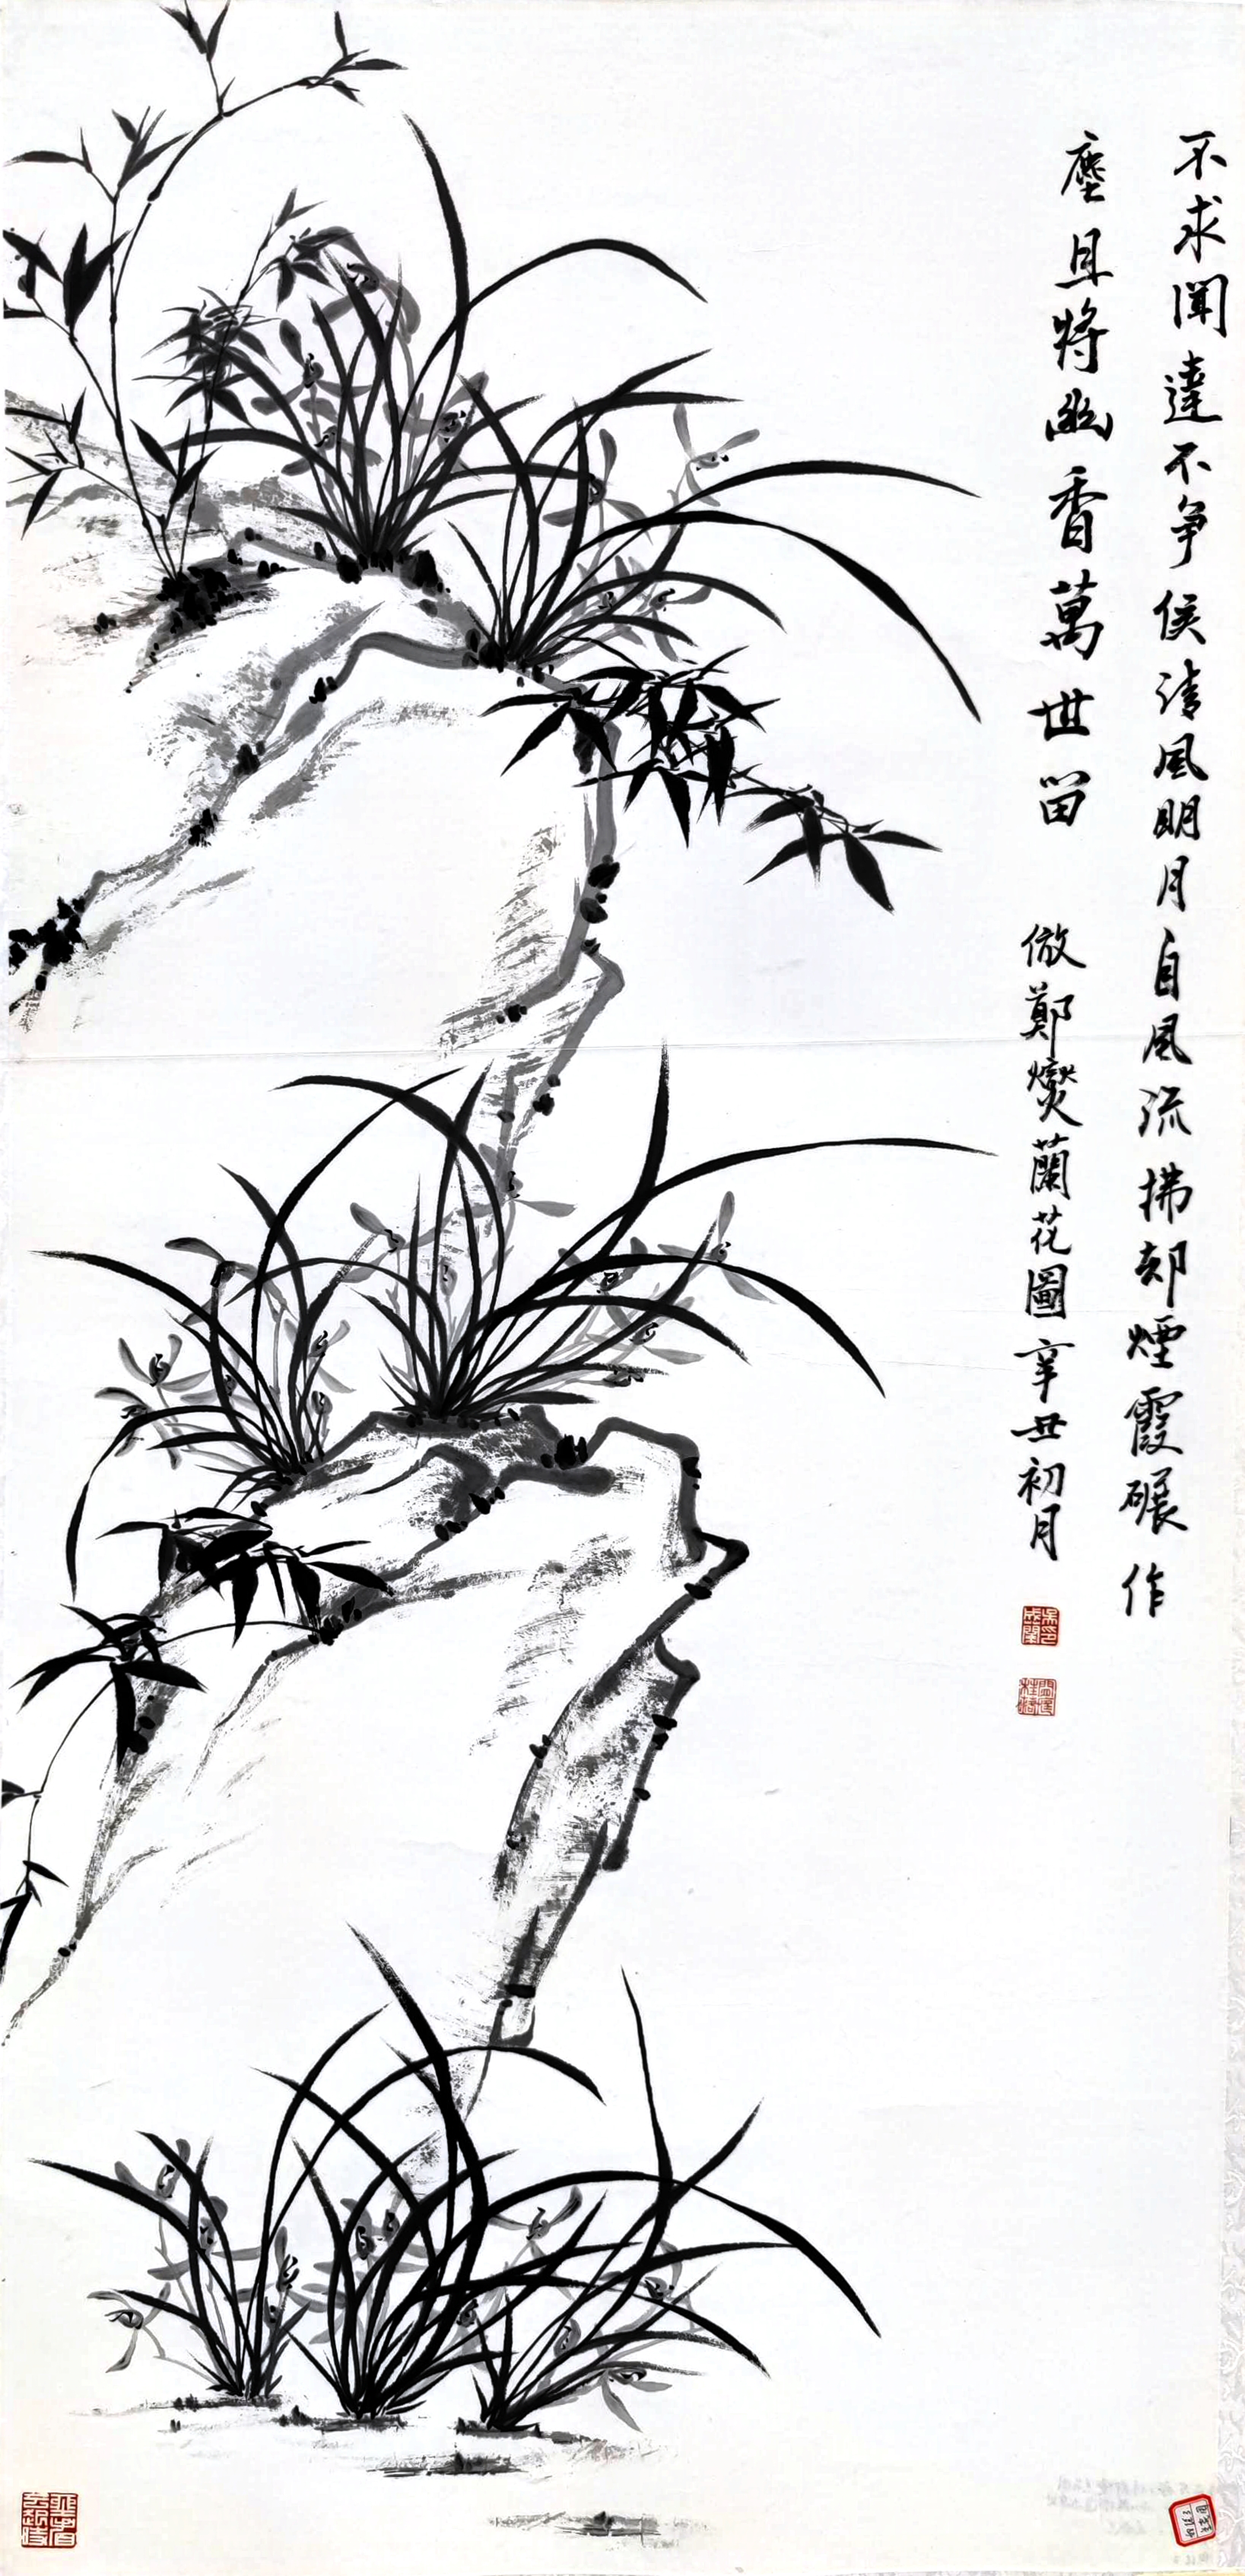 不求聞達不爭侯清風明月自風流拂却煙霞碾作
塵且將幽香萬世留
倣鄭燮蘭花圖辛丑初月